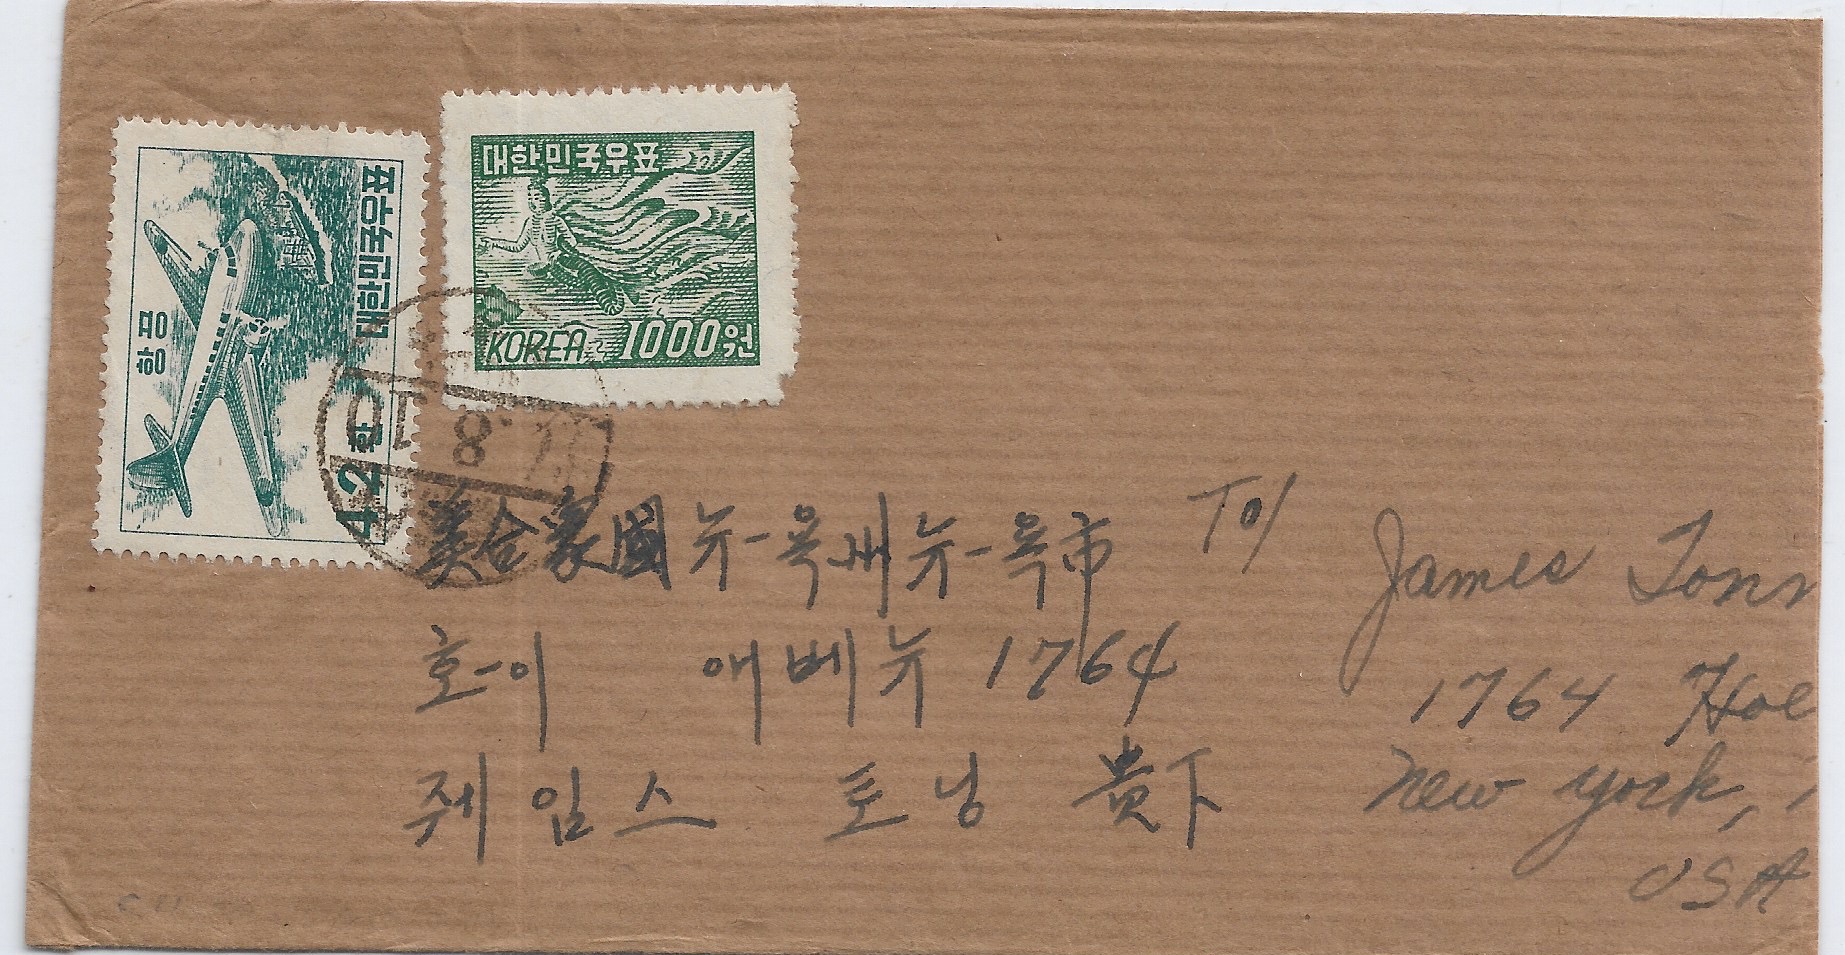 대한민국우표
항공
42환
대한민국우표
KOREA 1000원
8
美合衆國 뉴-욕州 뉴-욕市
호-이 애베뉴 1764
줴임스 토닝 貴下
To/
James
1764 Hoe
New York,
USA